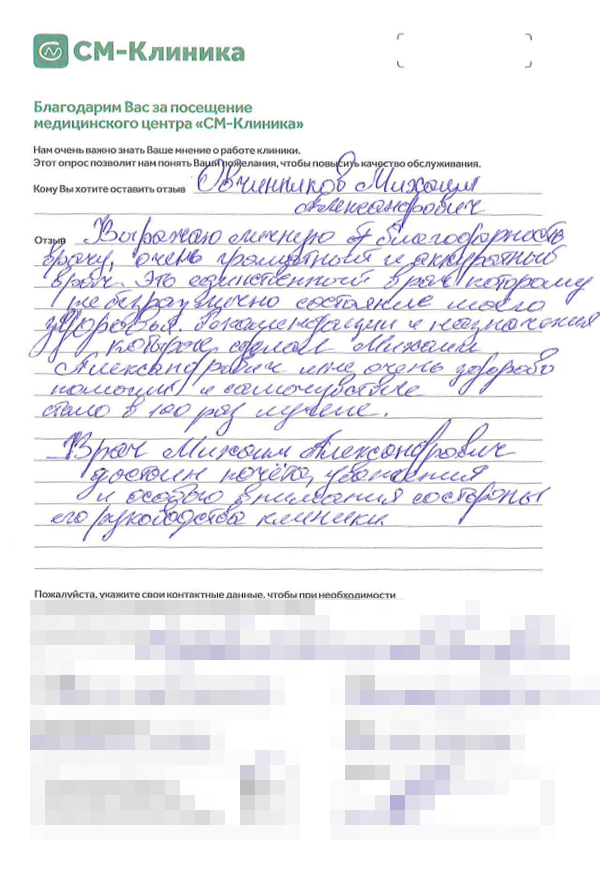 СМ-Клиника
Благодарим Вас за посещение
медицинского центра «СМ-Клиника»
Нам очень важно знать Ваше мнение о работе клиники.
Этот опрос позволит нам понять Ваши пожелания, чтобы повысить качество обслуживания.
Кому Вы хотите оставить отзыв Овчинников Михаил
Александрович
Отзыв Выражаю личную благодарность
врачу, очень грамотный и аккуратный
врач. Это единственный врач которому
небезразлично состояние моего
здоровья. Рекомендации и назначения
которые сделал Михаил
Александрович мне очень здорово
помогли и самочувствие
стало в 100 раз лучше.
Врач Михаил Александрович
достоин почёта, уважения
и особого внимания со стороны
его руководства клиники
Пожалуйста, укажите свои контактные данные, чтобы при необходимости